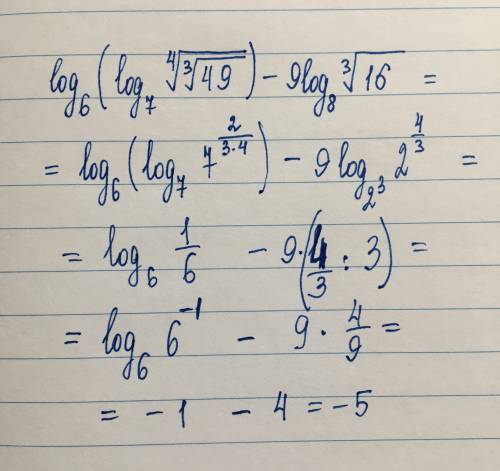 log₆(log₇ ⁴√(³√49)) − 9log₈ ³√16 =
= log₆(log₇ 7^(2/(3·4))) − 9log_(2³) 2^(4/3) =
= log₆ 1/6 − 9·(4/3 : 3) =
= log₆ 6⁻¹ − 9 · 4/9 =
= −1 − 4 = −5